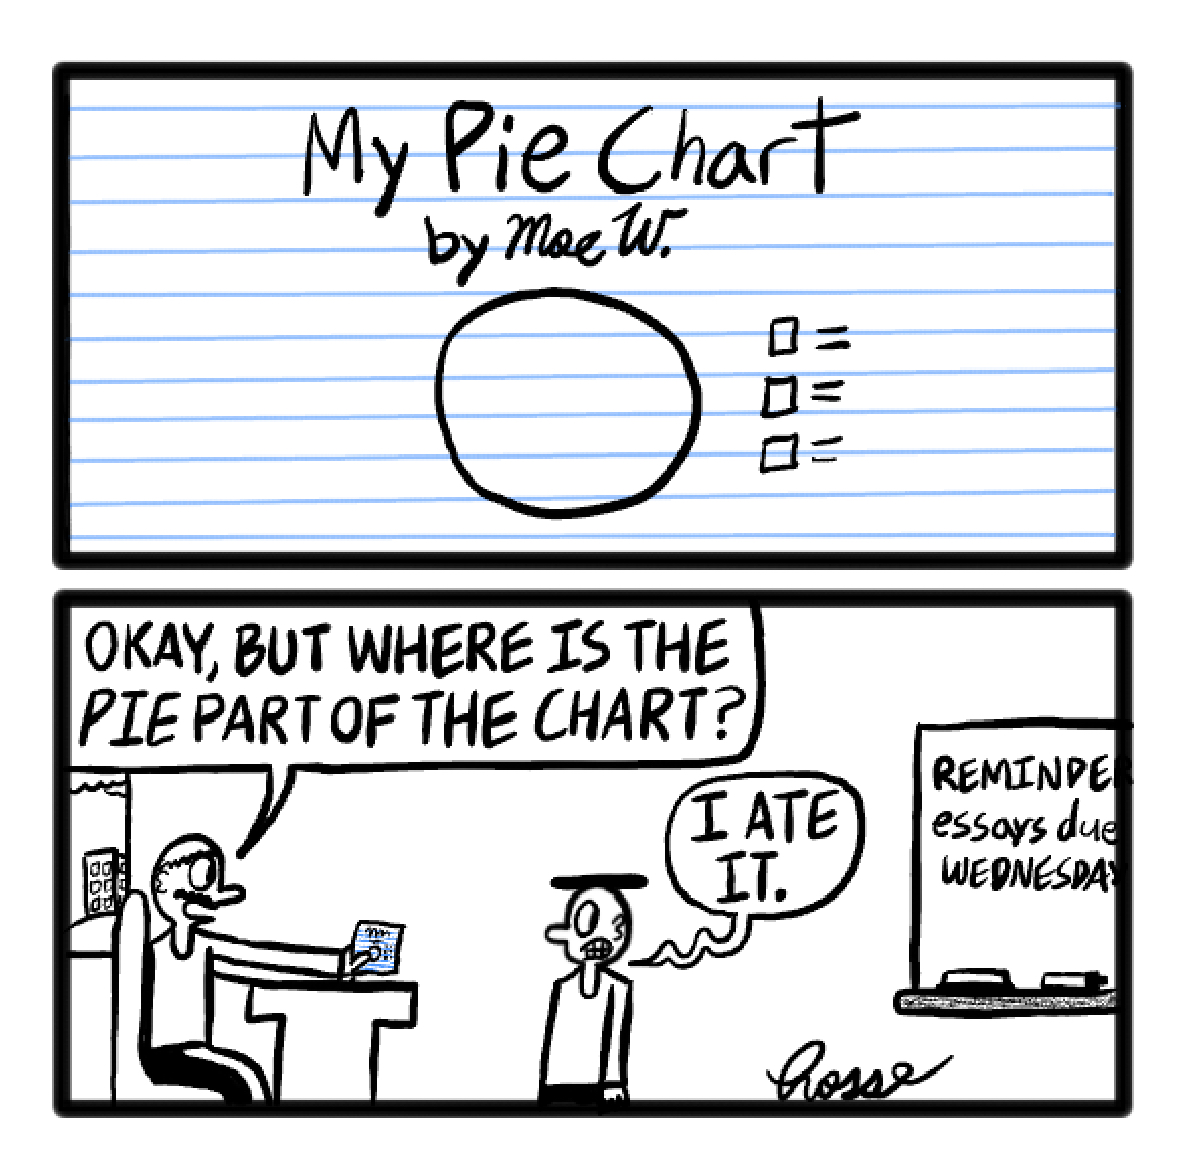 My Pie Chart
by Moe W.
=
=
=
OKAY, BUT WHERE IS THE
PIE PART OF THE CHART?
I ATE
IT.
REMINDER
essays due
WEDNESDAY
Rosse